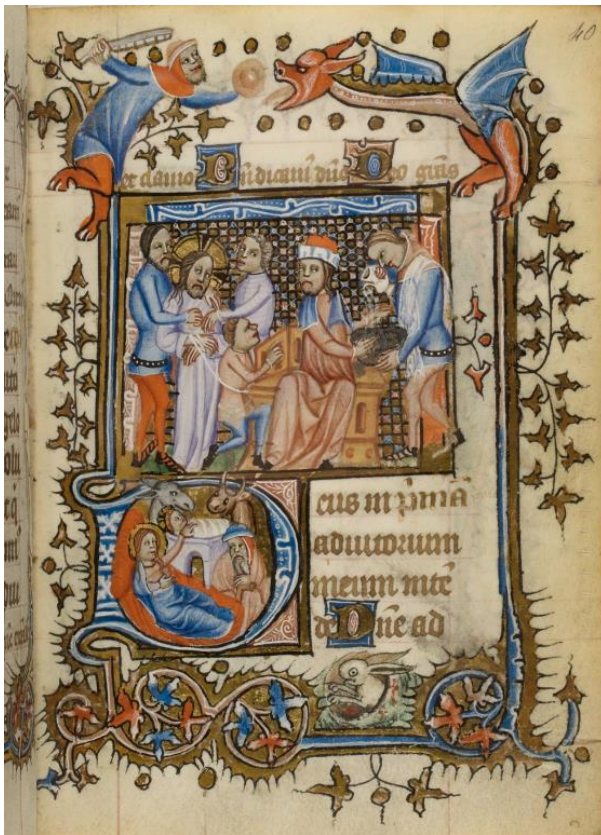 40
et clamo Bn̄dicam' dn̄o Deo gr̄as
Deus in p̄mā
adiutorium
meum intē
de Dn̄e ad